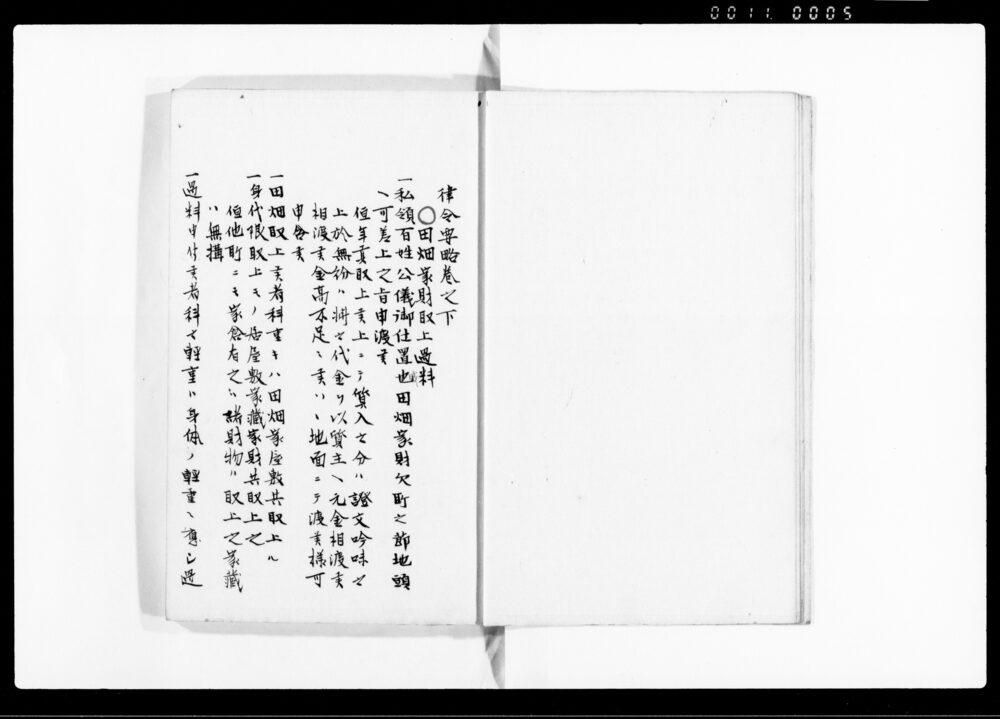 0011. 0005
律令要略巻之下
〇田畑家財取上過料
一私領百姓公儀御仕置也田畑家財欠所之節地頭
、可差上之旨申渡事
但年貢取上候上ニテ質入之分ハ證文吟味之
上於無紛ハ拂之代金ヲ以質主ヘ元金相渡候
相渡候金高不足ニ候ハヽ地面ニテ渡候様可
申付事
一田畑取上候者科重キハ田畑家屋敷共取上ル
一身代限取上モノ居屋敷家蔵家財共取上之
但他町ニモ家倉有之ハ諸財物ハ取上之家蔵
ハ無構
一過料申付候者科之輕重ハ身体ノ輕重ヘ應シ過